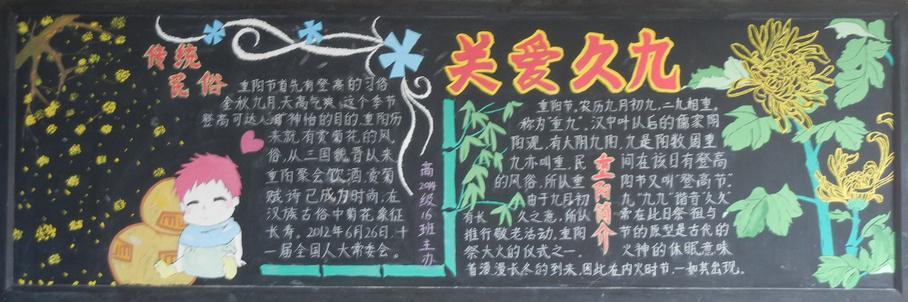 传统
民俗
重阳节首先有登高的习俗
金秋九月,天高气爽,这个季节
登高可达人旷神怡的目的,重阳历
来就有赏菊花的风
俗,从三国魏晋以来
重阳聚会饮酒,赏菊
赋诗已成为时尚,在
汉族古俗中菊花象征
长寿。2012年6月26日,十
一届全国人大常委会。
高
级16班主办
关爱久九
重阳节,农历九月初九,二九相重,
称为"重九",汉中叶以后的儒家阴
阳观,有太阴九阳,九是阳数固重
九亦叫重,民
间在该日有登高
的风俗,所以重
阳节又叫"登高节"。
由于九月初
九"九九"谐音"久久"
有长
久之意,所以
常在此日祭祖与
推行敬老活动,重阳
节的原型是古代的
祭大火的仪式之一.
火神的休眠意味
着漫漫长冬的到来,因此在内火时节,一如其出现。
重阳简介